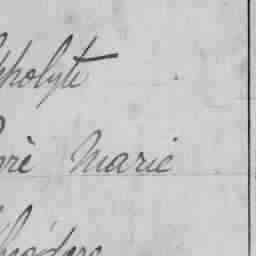 ppolyte
oré Marie
héodore